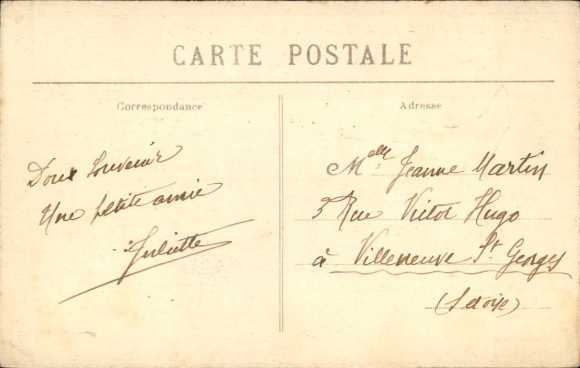 CARTE POSTALE
Correspondance
Doux Souvenir
Une petite amie
Juliette
Adresse
Melle Jeanne Martin
3 Rue Victor Hugo
à Villeneuve St Georges
(S et oise)